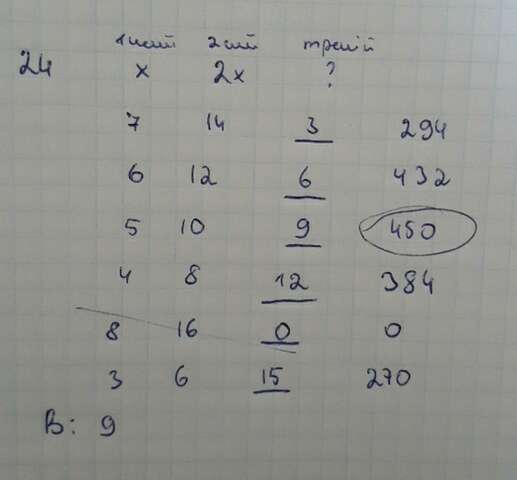 1ший 2гий третій
24 x 2x ?
7 14 3 294
6 12 6 432
5 10 9 450
4 8 12 384
8 16 0 0
3 6 15 270
В: 9